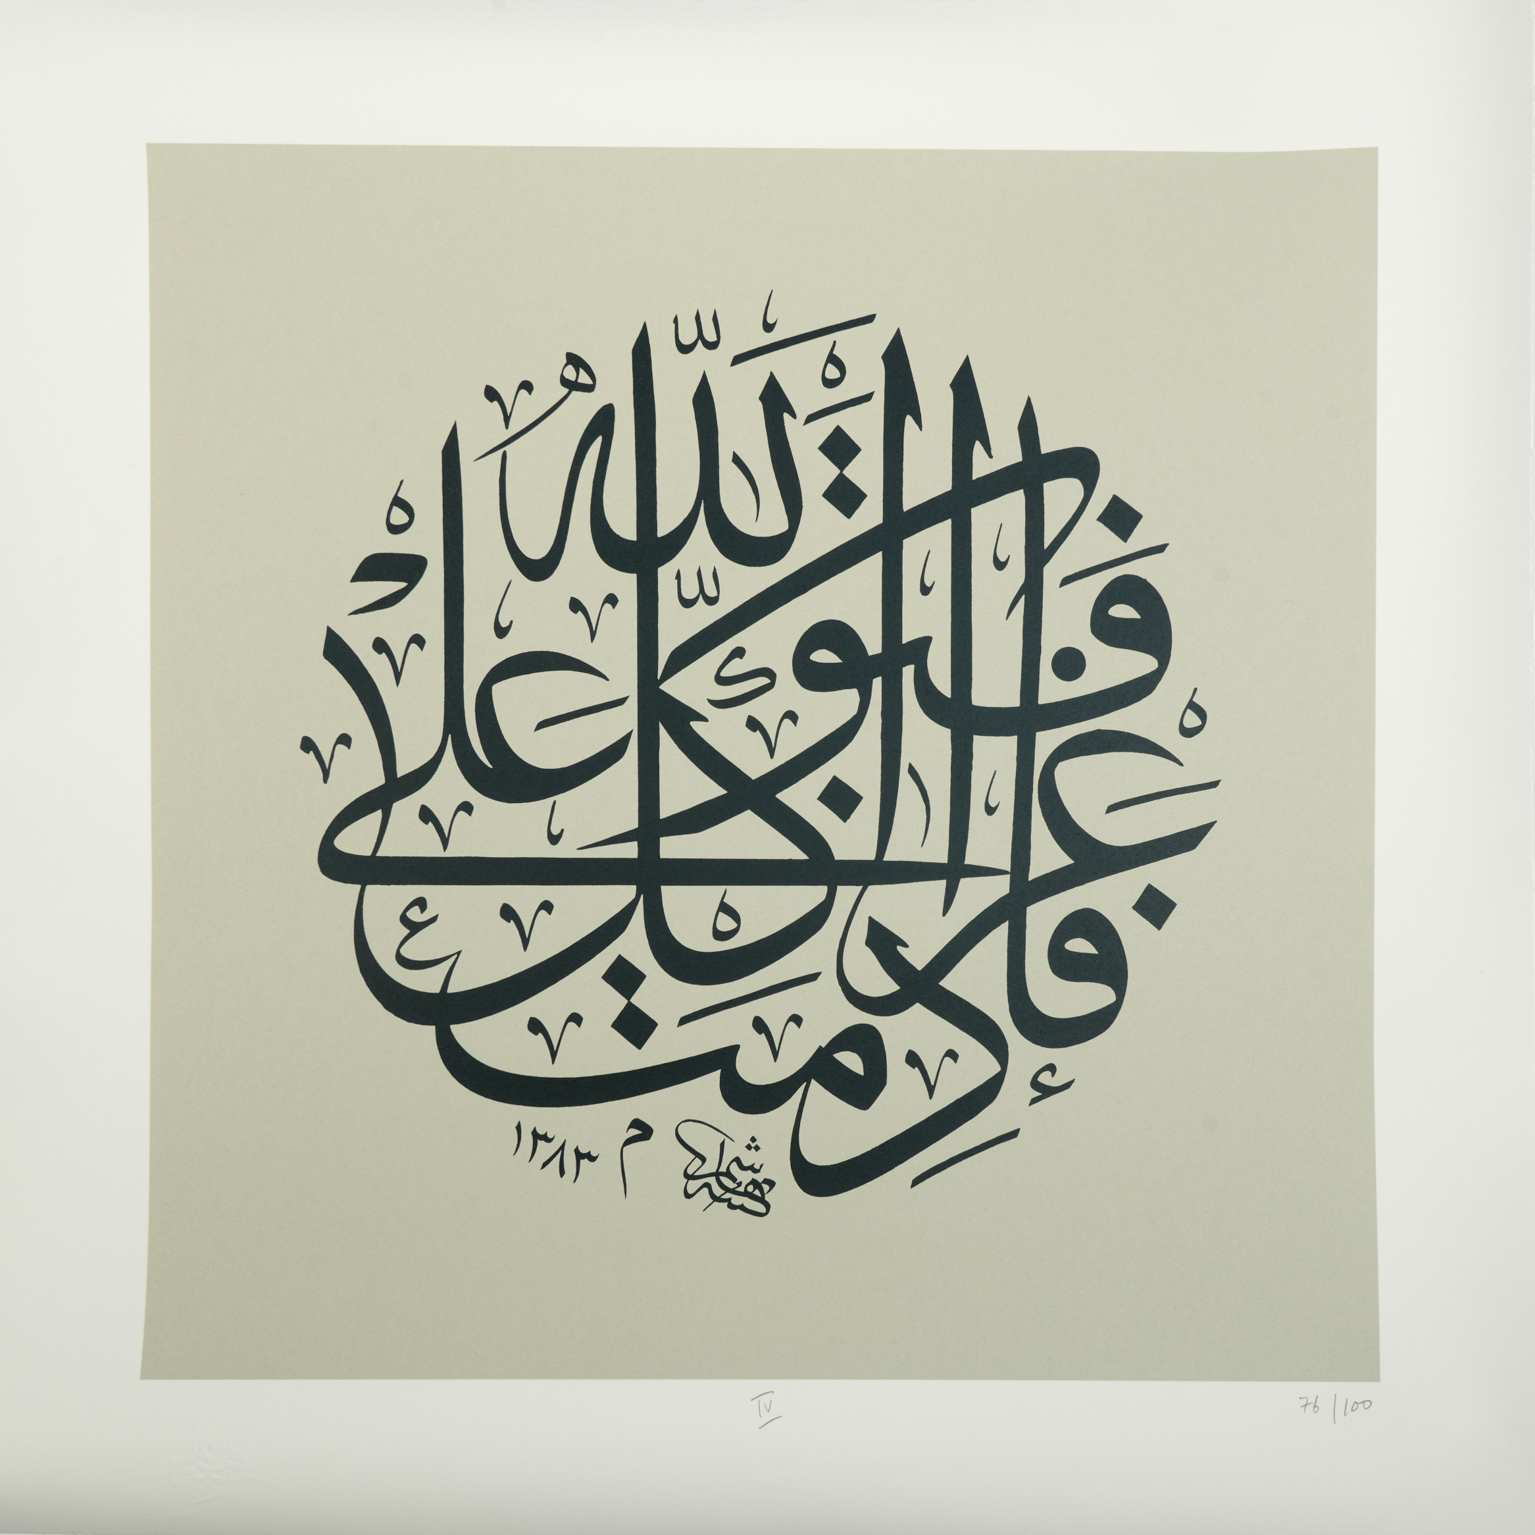 فَإِذَا عَزَمْتَ فَتَوَكَّلْ عَلَى اللَّهِ
هاشم
م ١٣٨٣
IV
76/100